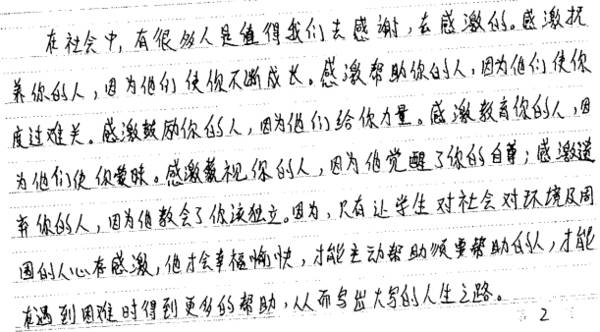 在社会中,有很多人是值得我们去感谢,去感激的。感激抚
养你的人,因为他们使你不断成长。感激帮助你的人,因为他们使你
度过难关。感激鼓励你的人,因为他们给你力量。感激教育你的人,因
为他们使你蒙昧。感激藐视你的人,因为他觉醒了你的自尊;感激遗
弃你的人,因为他教会了你该独立。因为,只有让学生对社会对环境及周
围的人心存感激,他才会幸福愉快,才能主动帮助须要帮助的人,才能
在遇到困难时得到更多的帮助,从而写出大写的人生之路。
2